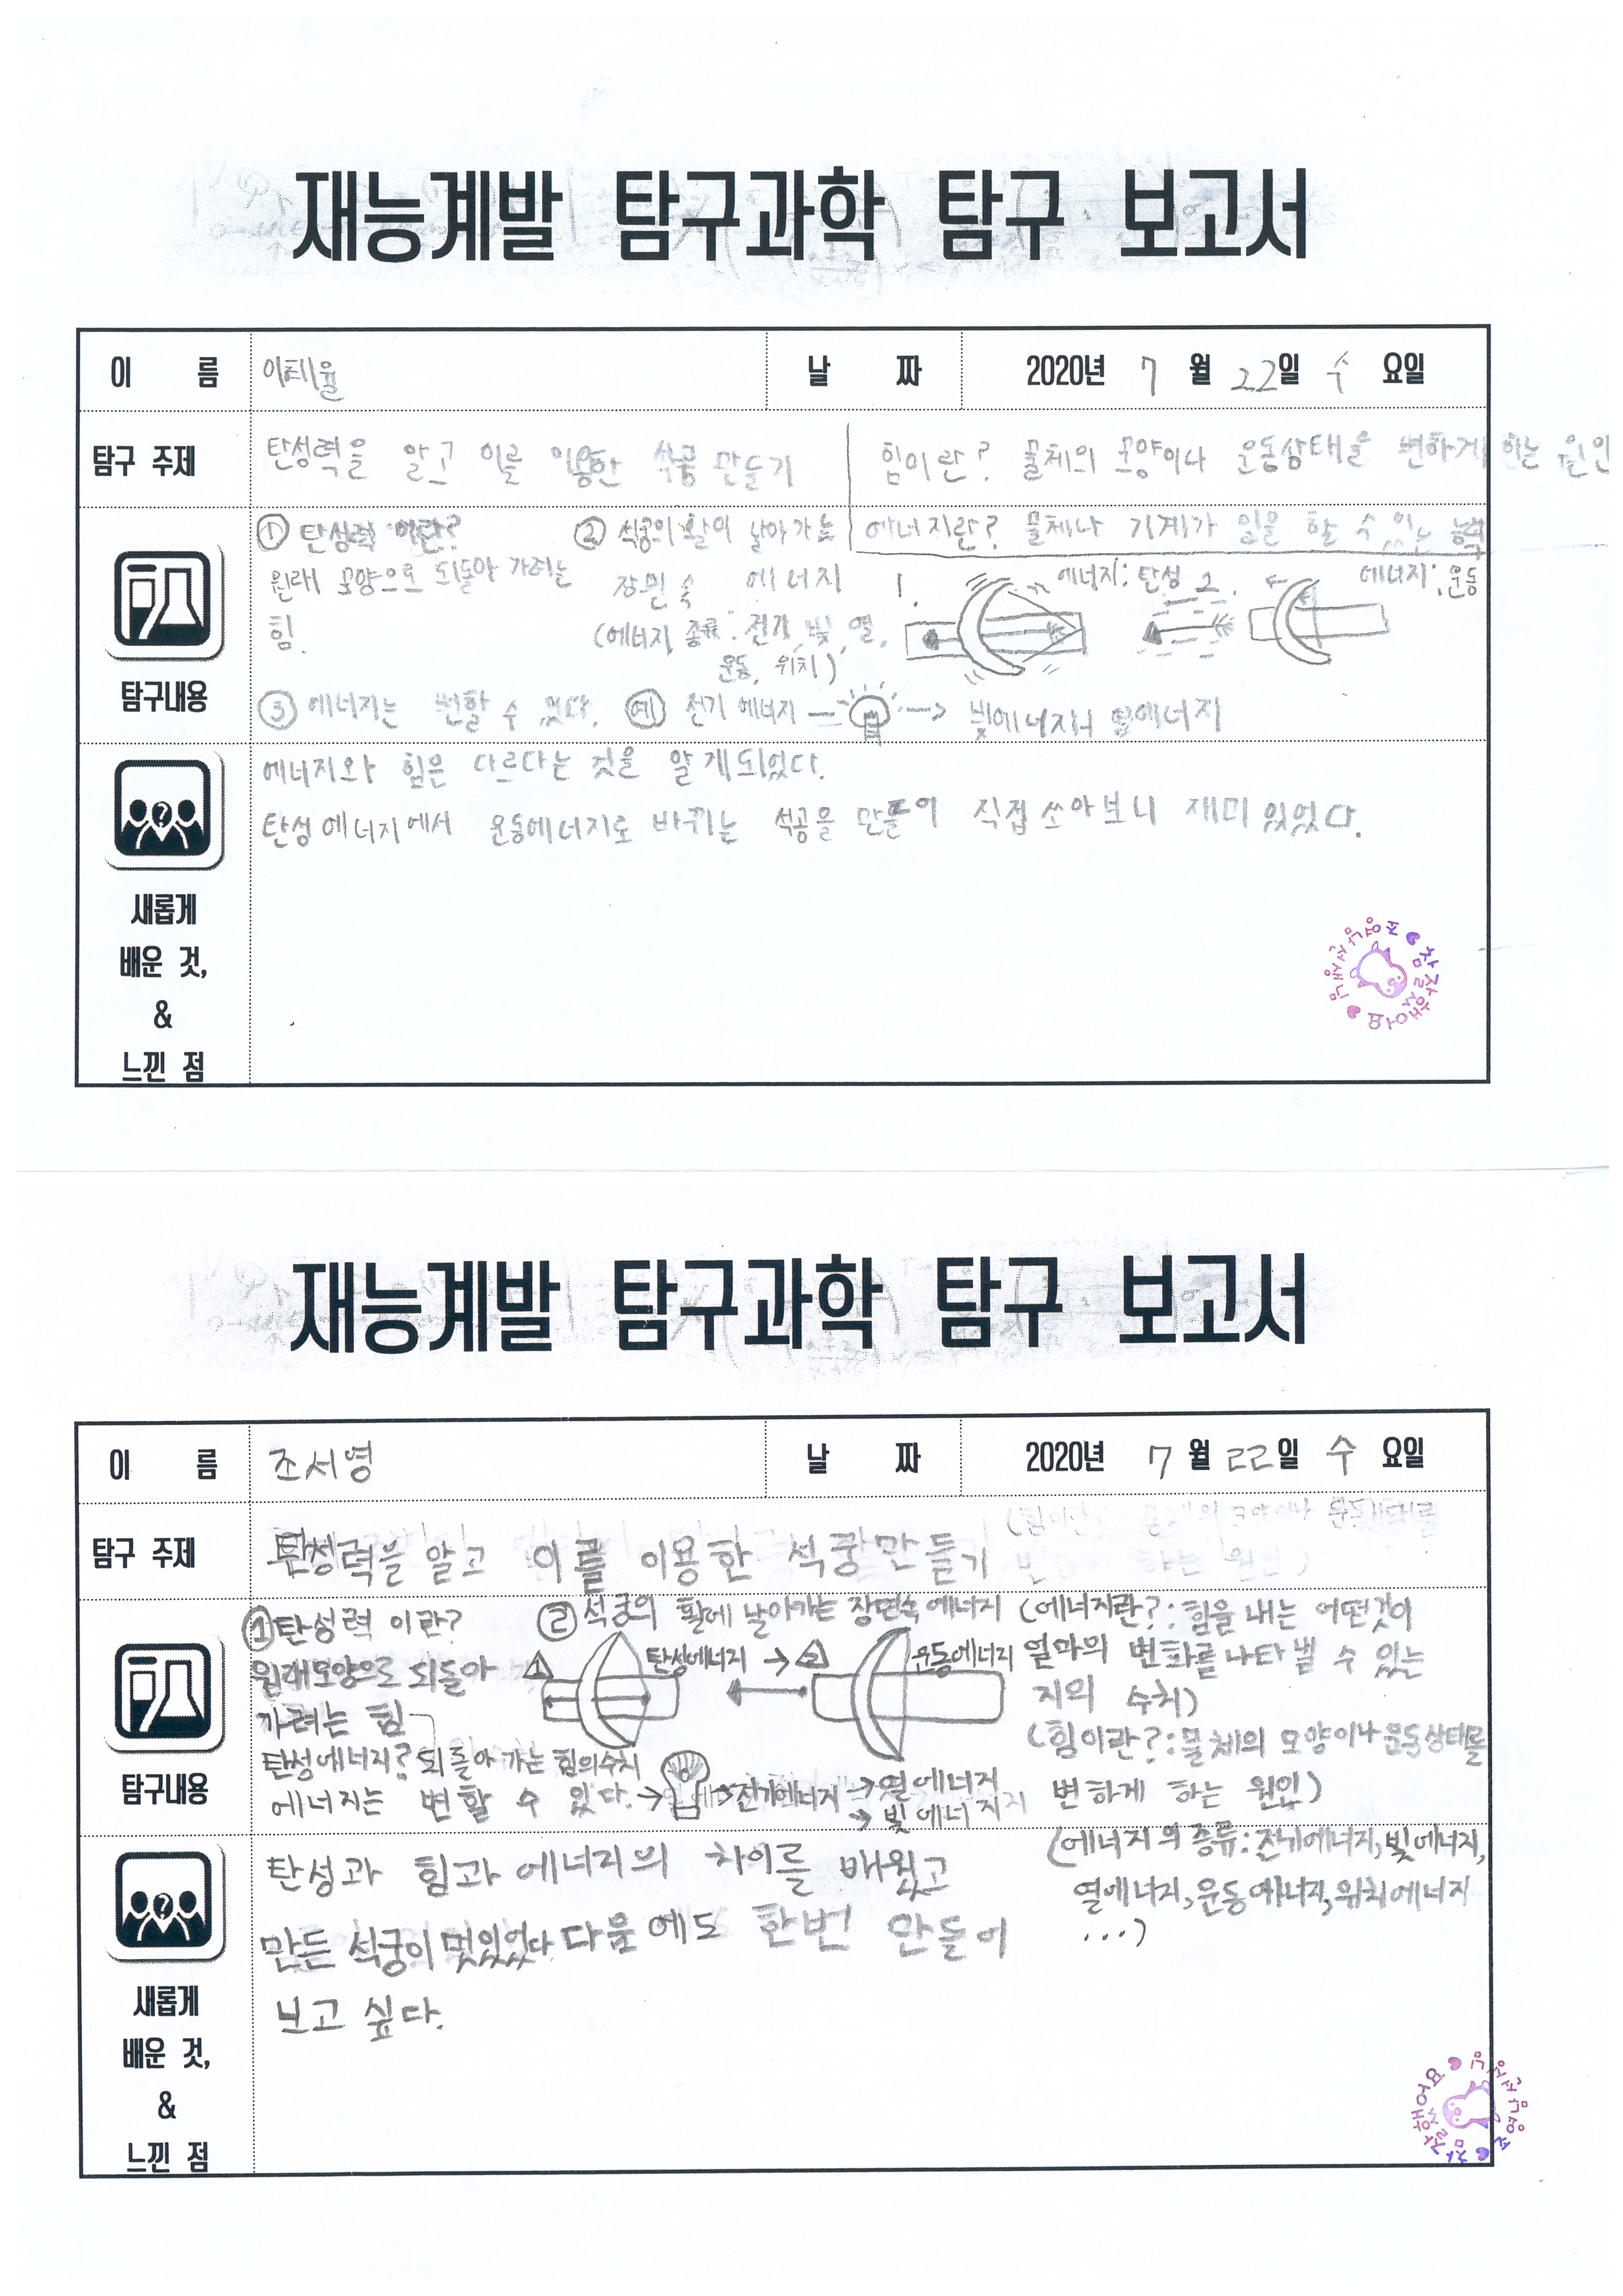 재능계발 탐구과학 탐구 보고서
이 름 이태율 날 짜 2020년 7월 22일 수요일
탐구 주제 탄성력을 알고 이를 이용한 석궁 만들기
힘이란? 물체의 모양이나 운동상태을 변하게 하는 원인
에너지란? 물체나 기계가 일을 할 수 있는 능력
탐구내용
① 탄성력 이란?
원래 모양으로 되돌아 가려는
힘.
② 석궁의 활이 날아가는
장면 속 에너지
(에너지 종류: 전기, 빛, 열,
운동, 위치)
1. 에너지: 탄성 2. 에너지: 운동
③ 에너지는 변할 수 있다. 예 전기 에너지 → 빛에너지나 열에너지
새롭게
배운 것,
&
느낀 점
에너지와 힘은 다르다는 것을 알게되었다.
탄성에너지에서 운동에너지로 바뀌는 석궁을 만들어 직접 쏘아보니 재미있었다.
참잘했어요
재능계발 탐구과학 탐구 보고서
이 름 조서영 날 짜 2020년 7월 22일 수요일
탐구 주제 탄성력을 알고 이를 이용한 석궁만들기
탐구내용
① 탄성력 이란?
원래모양으로 되돌아
가려는 힘
탄성에너지? 되돌아 가는 힘의수치
② 석궁의 활에 날아가는 장면속 에너지
1 탄성에너지 → 2 운동에너지
에너지는 변할 수 있다. → 전기에너지 → 열에너지
→ 빛에너지
(에너지란?: 힘을 내는 어떤것이
얼마의 변화를 나타낼 수 있는
지의 수치)
(힘이란?: 물체의 모양이나 운동상태를
변하게 하는 원인)
(에너지의 종류: 전기에너지, 빛에너지,
열에너지, 운동에너지, 위치에너지
...)
새롭게
배운 것,
&
느낀 점
탄성과 힘과 에너지의 차이를 배웠고
만든 석궁이 멋있었다 다음에도 한번 만들어
보고 싶다.
참잘했어요